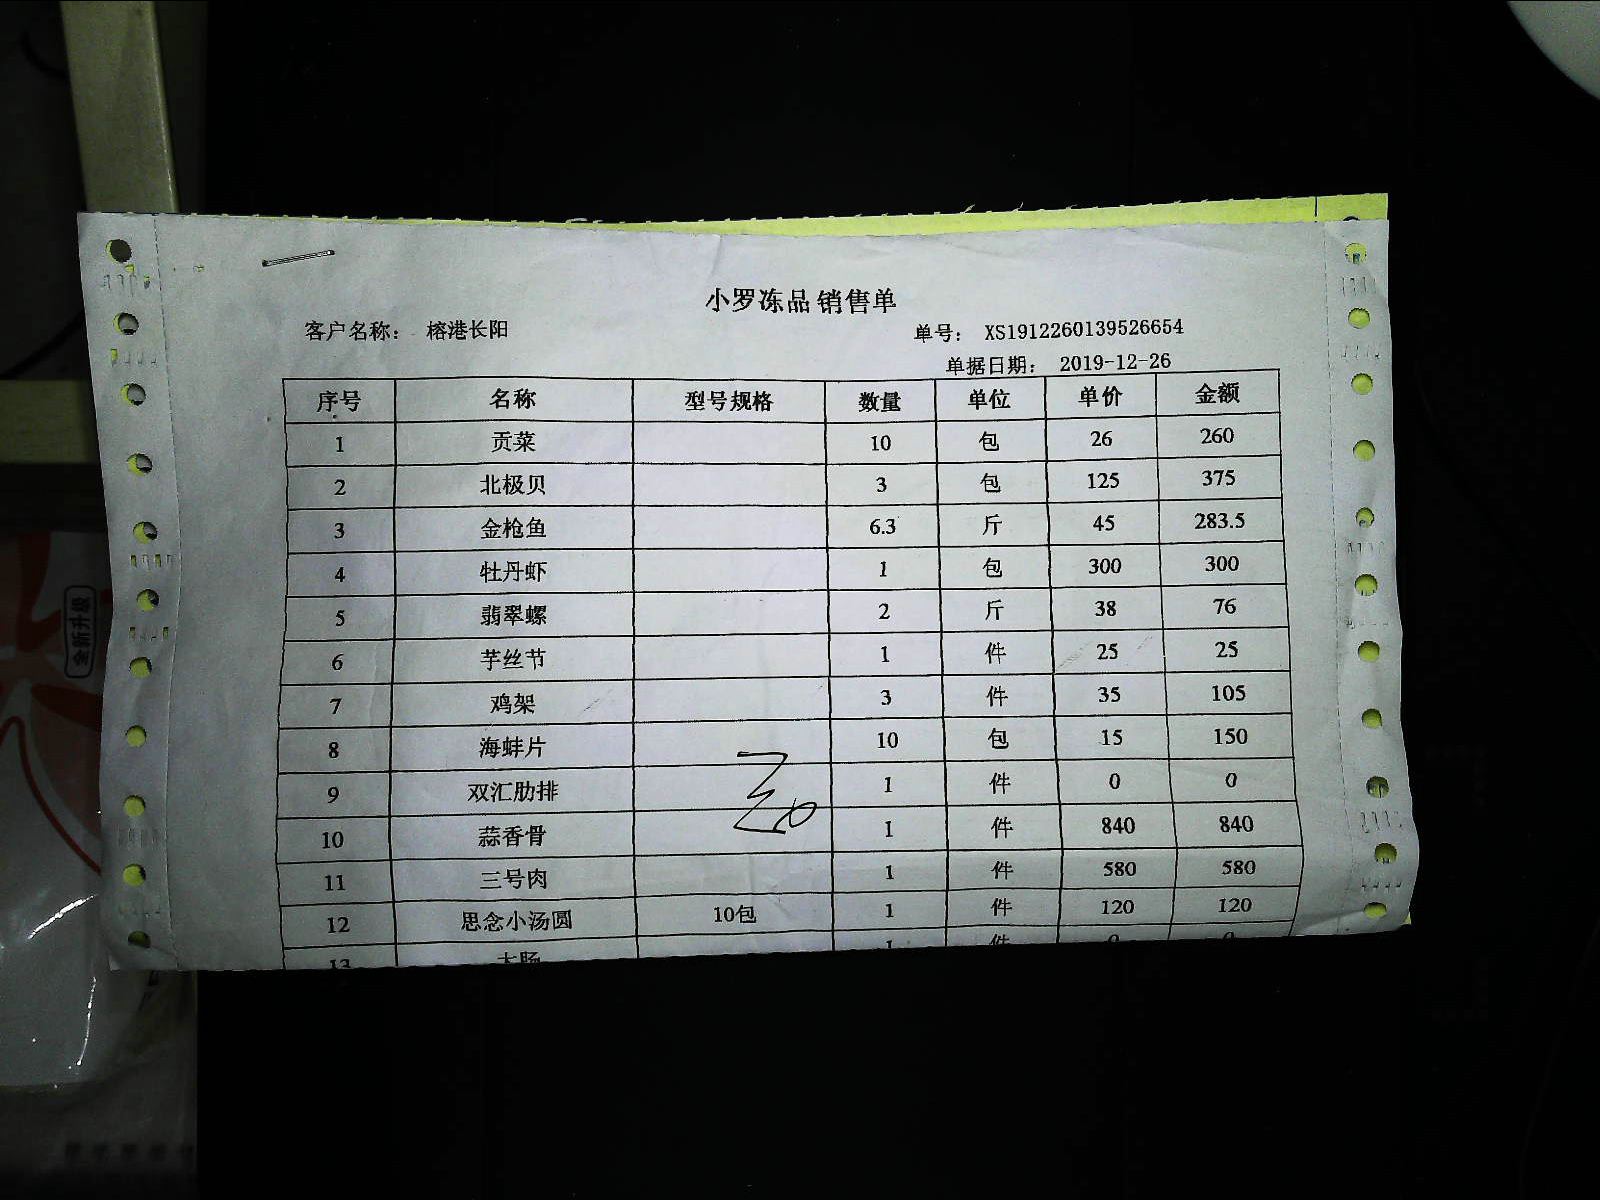 小罗冻品 销售单
客户名称： 榕港长阳 单号： XS1912260139526654
单据日期： 2019-12-26
序号 名称 型号规格 数量 单位 单价 金额
1 贡菜 10 包 26 260
2 北极贝 3 包 125 375
3 金枪鱼 6.3 斤 45 283.5
4 牡丹虾 1 包 300 300
5 翡翠螺 2 斤 38 76
6 芋丝节 1 件 25 25
7 鸡架 3 件 35 105
8 海蚌片 10 包 15 150
9 双汇肋排 1 件 0 0
10 蒜香骨 1 件 840 840
11 三号肉 1 件 580 580
12 思念小汤圆 10包 1 件 120 120
13 大肠 1 件 0 0
全新升级